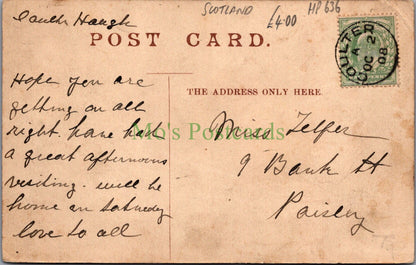 SCOTLAND
£4.00
HP 636
Haugh
POST CARD.
COULTER
A
OC 2
08
THE ADDRESS ONLY HERE.
Hope you are
getting on all
right. have had
a great afternoons
visiting. will be
home on Saturday
love to all
Mo's Postcards
Miss Telfer
9 Bank St
Paisley